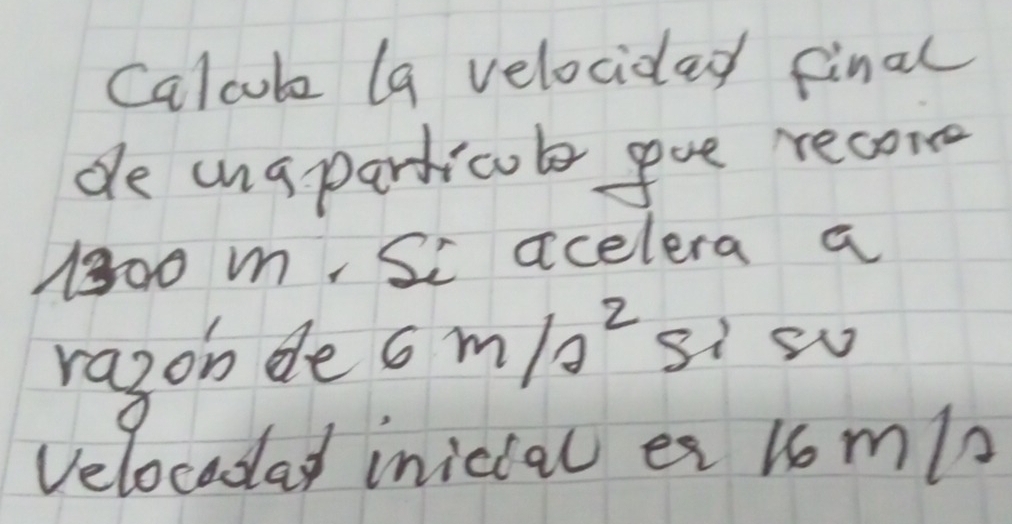 Calcula la velocidad final
de una particula que recorre
1300 m. Si acelera a
razón de 6 m/s² si su
velocidad inicial es 16 m/s